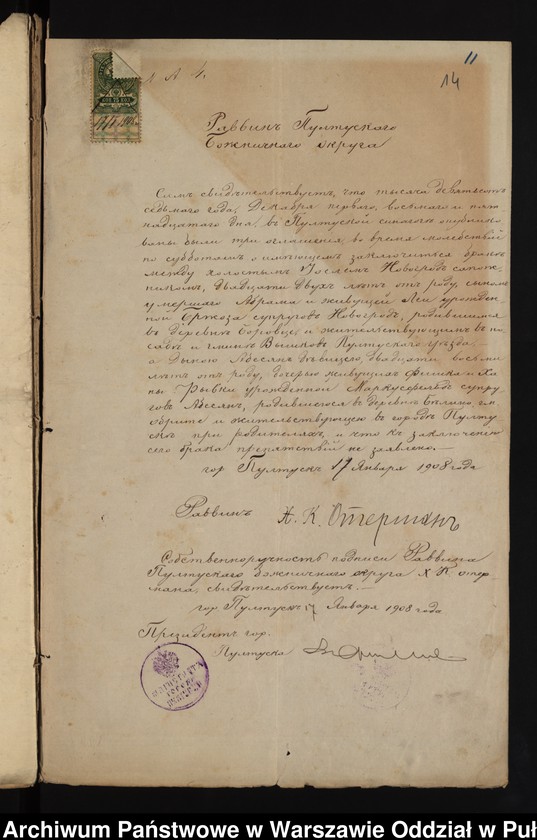 11
14
Раввинъ Пултускаго
Божничнаго округа
Симъ свидѣтельствуетъ, что тысяча девятьсотъ
седьмого года, Декабря перваго, восьмаго и пят-
надцатаго дня, въ Пултуской синагогѣ опублико-
ваны были три оглашенія, во время молебствій
по субботамъ о имѣющемъ заключиться бракѣ
между холостымъ Іоселемъ сапож-
никомъ, двадцати двухъ лѣтъ отъ роду, сыномъ
умершаго Абрама и живущей Леи урожден-
ной супруговъ Новогродъ, родившимся
въ деревнѣ и жительствующимъ въ по-
садѣ и гминѣ Вышковъ Пултускаго уѣзда. —
а Дыною дѣвицею, двадцати восьми
лѣтъ отъ роду, дочерью живущихъ Фишка и Ха-
ны Рывки урожденной Маркусфельдъ супру-
говъ родившеюся въ деревнѣ гм.
и жительствующею въ городѣ Пулту-
скѣ при родителяхъ, и что къ заключенію
сего брака препятствій не заявлено. —
гор. Пултускъ 17 Января 1908 года
Раввинъ Х. К. Отерманъ
Собственноручность подписи Раввина
Пултускаго божничнаго округа Х К Отер-
мана, свидѣтельствуетъ. —
гор. Пултускъ 17 Января 1908 года
Президентъ гор.
Пултуска
МАГИСТРАТЪ
ГОРОДА
ПУЛТУСКА
Archiwum Państwowe w Warszawie Oddział w Puł